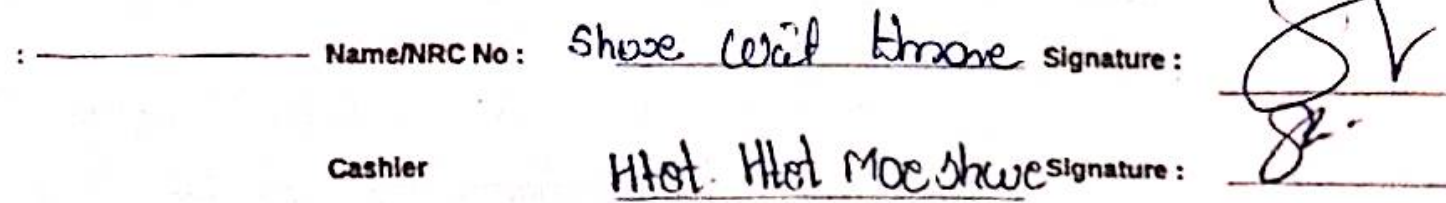 : Name/NRC No : Shwe Wait Hmone Signature :
Cashier Htet Htet Moe Shwe Signature :